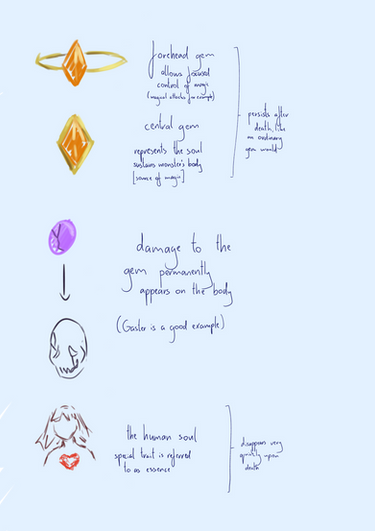 forehead gem
allows focused
control of magic
(magical attacks for example)
persists after
death, like
an ordinary
gem would
central gem
represents the soul
sustains monster's body
[source of magic]
damage to the
gem permanently
appears on the body
(Gaster is a good example)
the human soul
special trait is referred
to as essence
disappears very
quickly upon
death